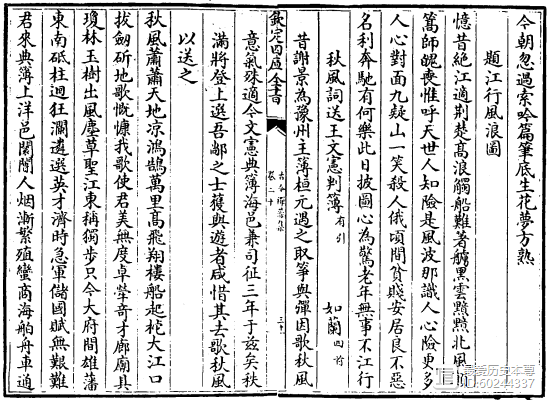 今朝忽過索吟篇筆底生花夢方熟
題江行風浪圖
憶昔絕江適荆楚髙浪觸船難著艣黒雲黯黯北風
篙師䰟喪惟呼天世人知險是風波那識人心險更多
人心對面九疑山一笑殺人俄頃間貧賤安居良不惡
名利奔馳有何樂此日披圖心為驚老年無事不江行
秋風詞送王文憲判簿有引 如蘭四首
昔謝景為豫州主簿桓元遇之取箏與彈因歌秋風
欽定四庫全書
卷二十
三十
意氣殊適今文憲典簿海邑兼司征三年于兹矣秩
滿將登上選吾鄙之士獲與遊者咸惜其去歌秋風
以送之
秋風蕭蕭天地凉鴻鵠萬里髙飛翔樓船起柁大江口
拔劔斫地歌慨慷我歌使君美無度卓犖奇才廊廟具
瓊林玉樹出風塵草聖江東稱獨步只今大府開雄藩
東南砥柱迴狂瀾遴選英才濟時急軍儲國賦無艱難
君來典簿上洋邑閭閻人烟漸繁殖蠻商海舶舟車通
ID:60244337